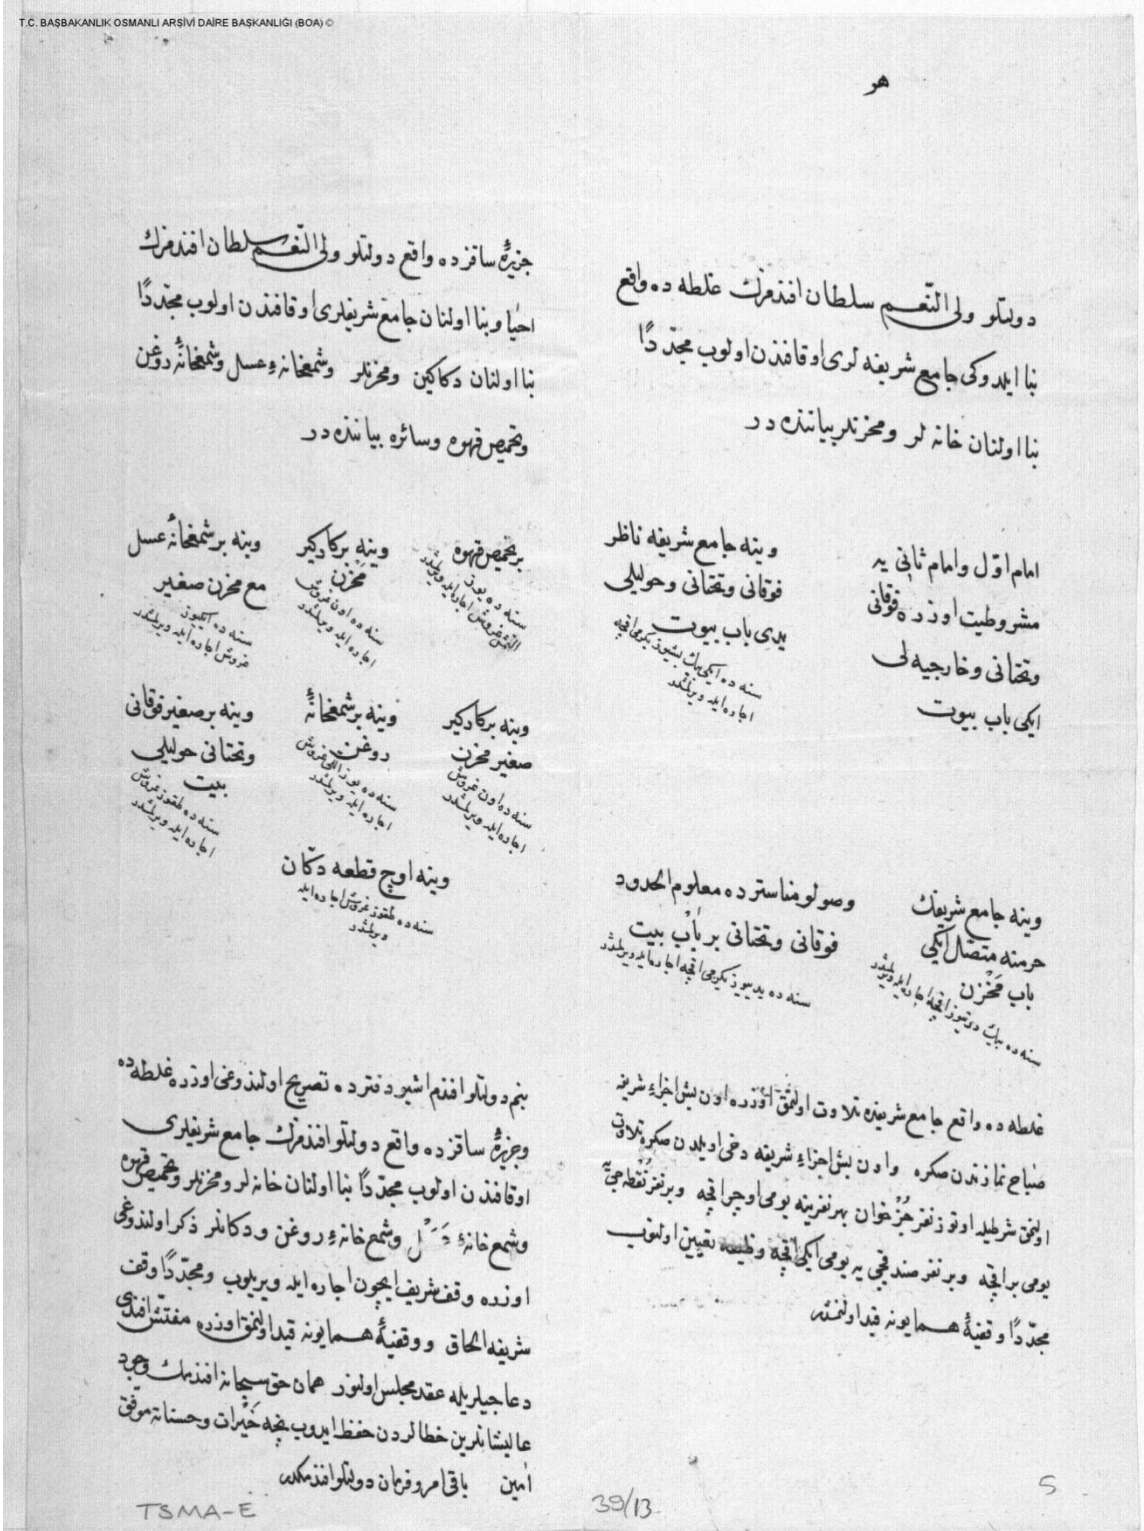 T.C. BAŞBAKANLIK OSMANLI ARŞİVİ DAİRE BAŞKANLIĞI (BOA) ©
هو
دولتلو ولی النّعم سلطان افندمزك غلطه ده واقع
بنا ایلدوکی جامع شریفه لری اوقافندن اولوب مجدّدًا
بنا اولنان خانه لر ومخزنلر بیاننده در
امام اوّل وامام ثانی یه
مشروطیت اوزره فوقانی
وتحتانی وخارجیه لی
ایکی باب بیوت
وینه جامع شریفه ناظر
فوقانی وتحتانی وحولیلی
یدی باب بیوت
سنه ده ایکی بیك بشیوز یکرمی اقچه
اجاره ایله ویرلمشدر
وینه جامع شریفك
حرمنه متصّل ایکی
باب مخزن
سنه ده بیك درتیوز اقچه اجاره ایله ویرلمشدر
وصولو مناسترده معلوم الحدود
فوقانی وتحتانی بر باب بیت
سنه ده یدییوز یکرمی اقچه اجاره ایله ویرلمشدر
غلطه ده واقع جامع شریفده تلاوت اولنمق اوزره اون بش اجزاء شریفه
صباح نمازندن صکره واون بش اجزاء شریفه دخی اویلدن صکره تلاوت
اولنمق شرطیله اوتوز نفر جزخوان بهر نفرینه یومی اوچر اقچه وبر نفر نقطه جی یه
یومی بر اقچه وبر نفر صندقجی یه یومی ایکی اقچه وظیفه تعیین اولنوب
مجدّدًا وقفیهٔ همایونه قید اولنمشدر
جزیرهٔ ساقزده واقع دولتلو ولی النّعم سلطان افندمزك
احیا وبنا اولنان جامع شریفلری اوقافندن اولوب مجدّدًا
بنا اولنان دکاکین ومخزنلر وشمعخانهٔ عسل وشمعخانهٔ روغن
وتحمیص قهوه وسائره بیاننده در
بر تحمیص قهوه
سنه ده یوز
التمش غروش اجاره ایله ویرلمشدر
وینه بر کارکیر
مخزن
سنه ده اون غروش
اجاره ایله ویرلمشدر
وینه بر شمعخانهٔ عسل
مع مخزن صغیر
سنه ده ایکیوز
غروش اجاره ایله ویرلمشدر
وینه بر کارکیر
صغیر مخزن
سنه ده اون غروش
اجاره ایله ویرلمشدر
وینه بر شمعخانهٔ
روغن
سنه ده یوز اللی غروش
اجاره ایله ویرلمشدر
وینه بر صغیر فوقانی
وتحتانی حولیلی
بیت
سنه ده طقوز غروش
اجاره ایله ویرلمشدر
وینه اوچ قطعه دکّان
سنه ده طقوز غروش اجاره ایله
ویرلمشدر
بنم دولتلو افندم اشبو دفترده تصریح اولندوغی اوزره غلطه ده
وجزیرهٔ ساقزده واقع دولتلو افندمزك جامع شریفلری
اوقافندن اولوب مجدّدًا بنا اولنان خانه لر ومخزنلر وتحمیص قهوه
وشمع خانهٔ عسل وشمع خانهٔ روغن ودکانلر ذکر اولندوغی
اوزره وقف شریف ایچون اجاره ایله ویریلوب ومجدّدًا وقف
شریفه الحاق ووقفیهٔ همایونه قید اولنمق اوزره مفتّش افندی
دعاجیلریله عقد مجلس اولنور همان حق سبحانه افندمك وجود
عالیشانلرین خطالردن حفظ ایدوب نیجه خیرات وحسناته موفّق
امین باقی امر وفرمان دولتلو افندمکدر
TSMA-E
39/13
5